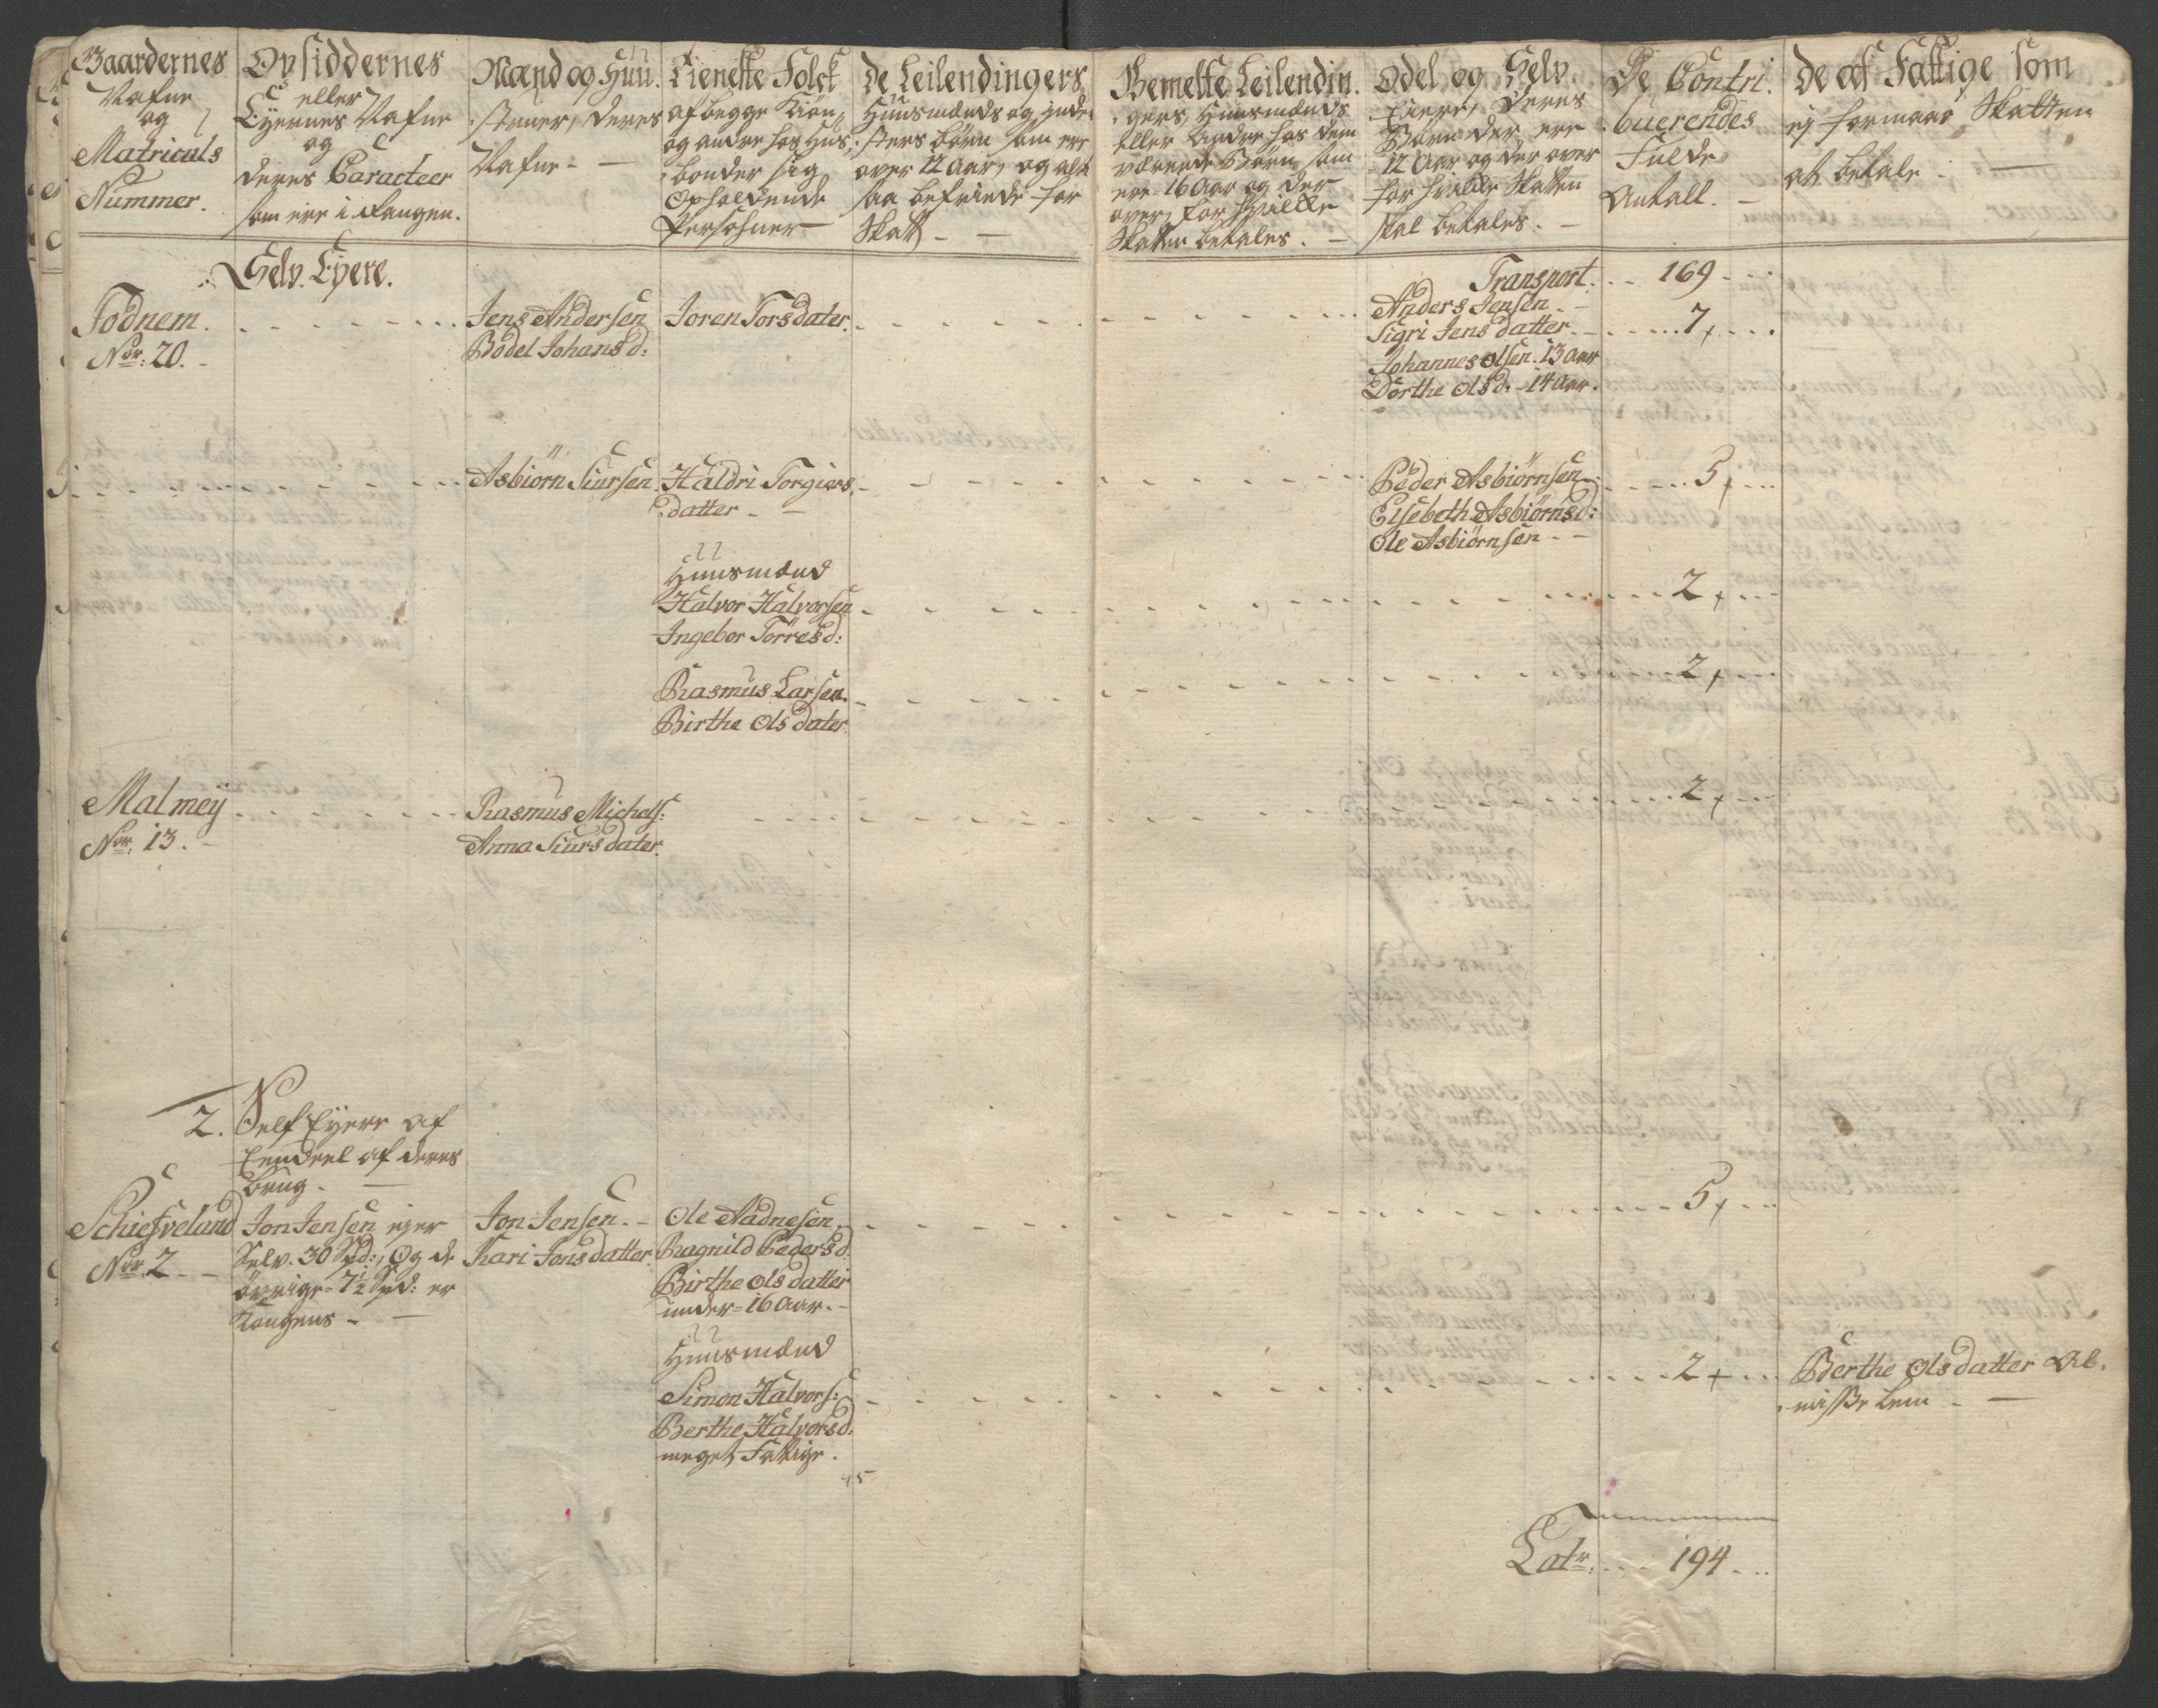 Gaardernes
Nafne
og
Matriculs
Nummer.
Opsiddernes
eller
Eyernes Nafne
og
deres Caracteer
som ere i Rangen.
Mand og Huu-
struer, deres
Nafne -
Tieneste Folck
af begge Kiøn,
og andre hos Hus-
bonder sig
Opholdende
Persohner
De Leilendingers
Huusmænds og Inder-
sters børn som ere
over 12 Aar, og alt-
saa befriede for
Skatt -
Bemelte Leilendin-
gers, Huusmænds
eller andre hos dem
værende Børn som
ere 16 Aar og der
over, for hvilcke
Skatten betales. -
Odel og Selv-
Eiere, deres
Børn der ere
12 Aar og der over
for hvilcke Skatten
skal betales. -
De Contri-
buerendes
Fulde
Antall. -
De af Fattige som
ej formaar Skatten
at betale. -
Selv-Eyere.
Transport. - - 169 - -
Fodnem.
Nor: 20. -
Jens Andersen
Bodel Johansd:
Joren Torsdater.
Anders Jensen. -
Sigri Jensdatter - - 7 + - -
Johannes Olsen. 13 aar
Dorthe Olsd: - 14 Aar.
Asbiørn Siursen.
Haldri Torgiers-
datter -
Peder Asbiørnsen - - 5 + - -
Elsebeth Asbiørnsd:
Ole Asbiørnsen - -
Huusmænd
Halvor Halvorsen - - 2 + - -
Ingebor Torresd:
Rasmus Larsen. - - 2 + - -
Birthe Olsdater.
Malmeÿ
Nor: 13. -
Rasmus Michels: - - 2 + - -
Anna Siursdater.
2. Self Eyere af
Eendeel af deres
brug. -
Schiefveland
Nor: 2 - -
Jon Jensen ejer
Selv. 30 Spd:, Og de
övrige - 7½ Spd: er
Kongens -
Jon Jensen. -
Kari Jonsdatter
Ole Aadnesen. - - 5 + - -
Ragnild Pedersd:
Birthe Olsdatter
under - 16 Aar. -
Huusmænd
Simon Halvors: - - 2 + - -
Berthe Halvorsd:
meget Fattige.
Berthe Olsdatter Al-
misse Lem -
Latr. - - 194 - -